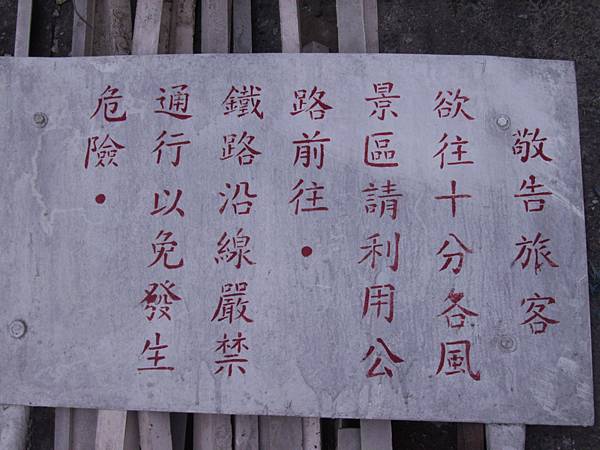 敬告旅客
欲往十分各風
景區請利用公
路前往．
鐵路沿線嚴禁
通行以免發生
危險．